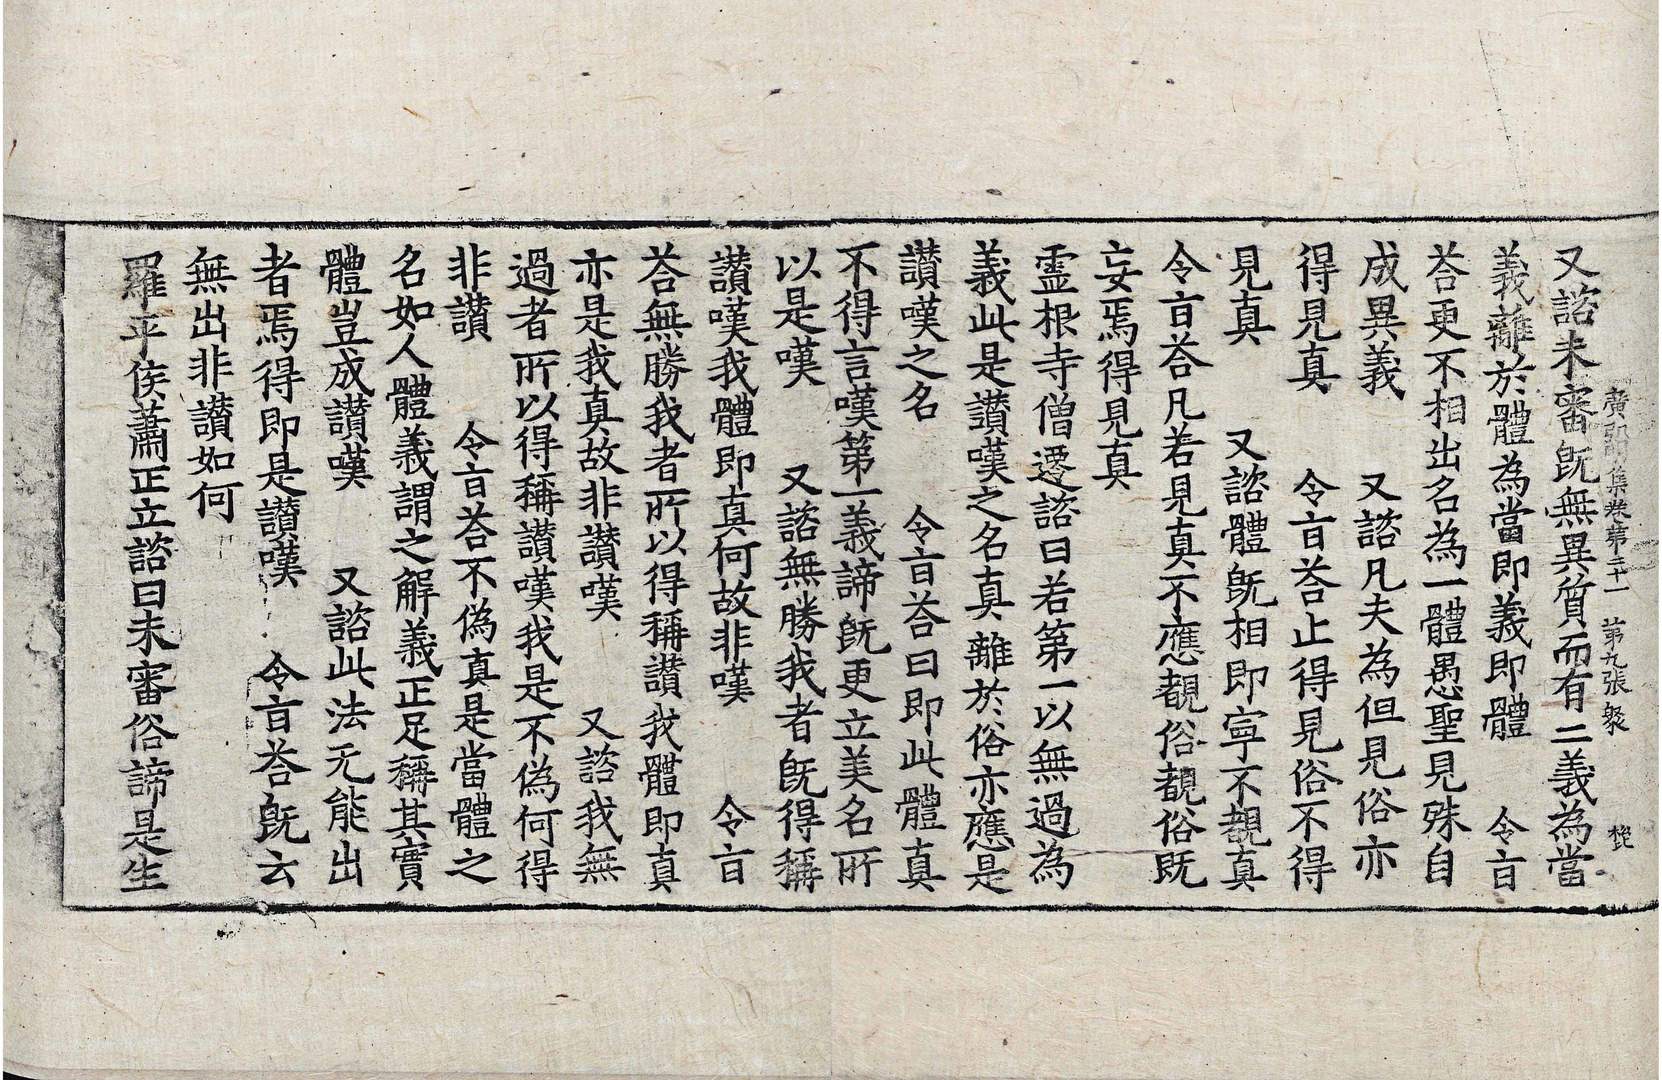 廣弘明集卷第二十一 第九張 㲋
又諮未審旣無異質而有二義為當
義離於體為當即義即體 令旨
荅更不相出名為一體愚聖見殊自
成異義 又諮凡夫為但見俗亦
得見真 令旨荅止得見俗不得
見真 又諮體旣相即寧不覩真
令旨荅凡若見真不應覩俗覩俗旣
妄焉得見真
靈根寺僧遷諮曰若第一以無過為
義此是讃嘆之名真離於俗亦應是
讃嘆之名 令旨荅曰即此體真
不得言嘆第一義諦旣更立美名所
以是嘆 又諮無勝我者旣得稱
讃嘆我體即真何故非嘆 令旨
荅無勝我者所以得稱讃我體即真
亦是我真故非讃嘆 又諮我無
過者所以得稱讃嘆我是不偽何得
非讃 令旨荅不偽真是當體之
名如人體義謂之解義正足稱其實
體豈成讃嘆 又諮此法无能出
者焉得即是讃嘆 令旨荅旣云
無出非讃如何
羅平侯蕭正立諮曰未審俗諦是生